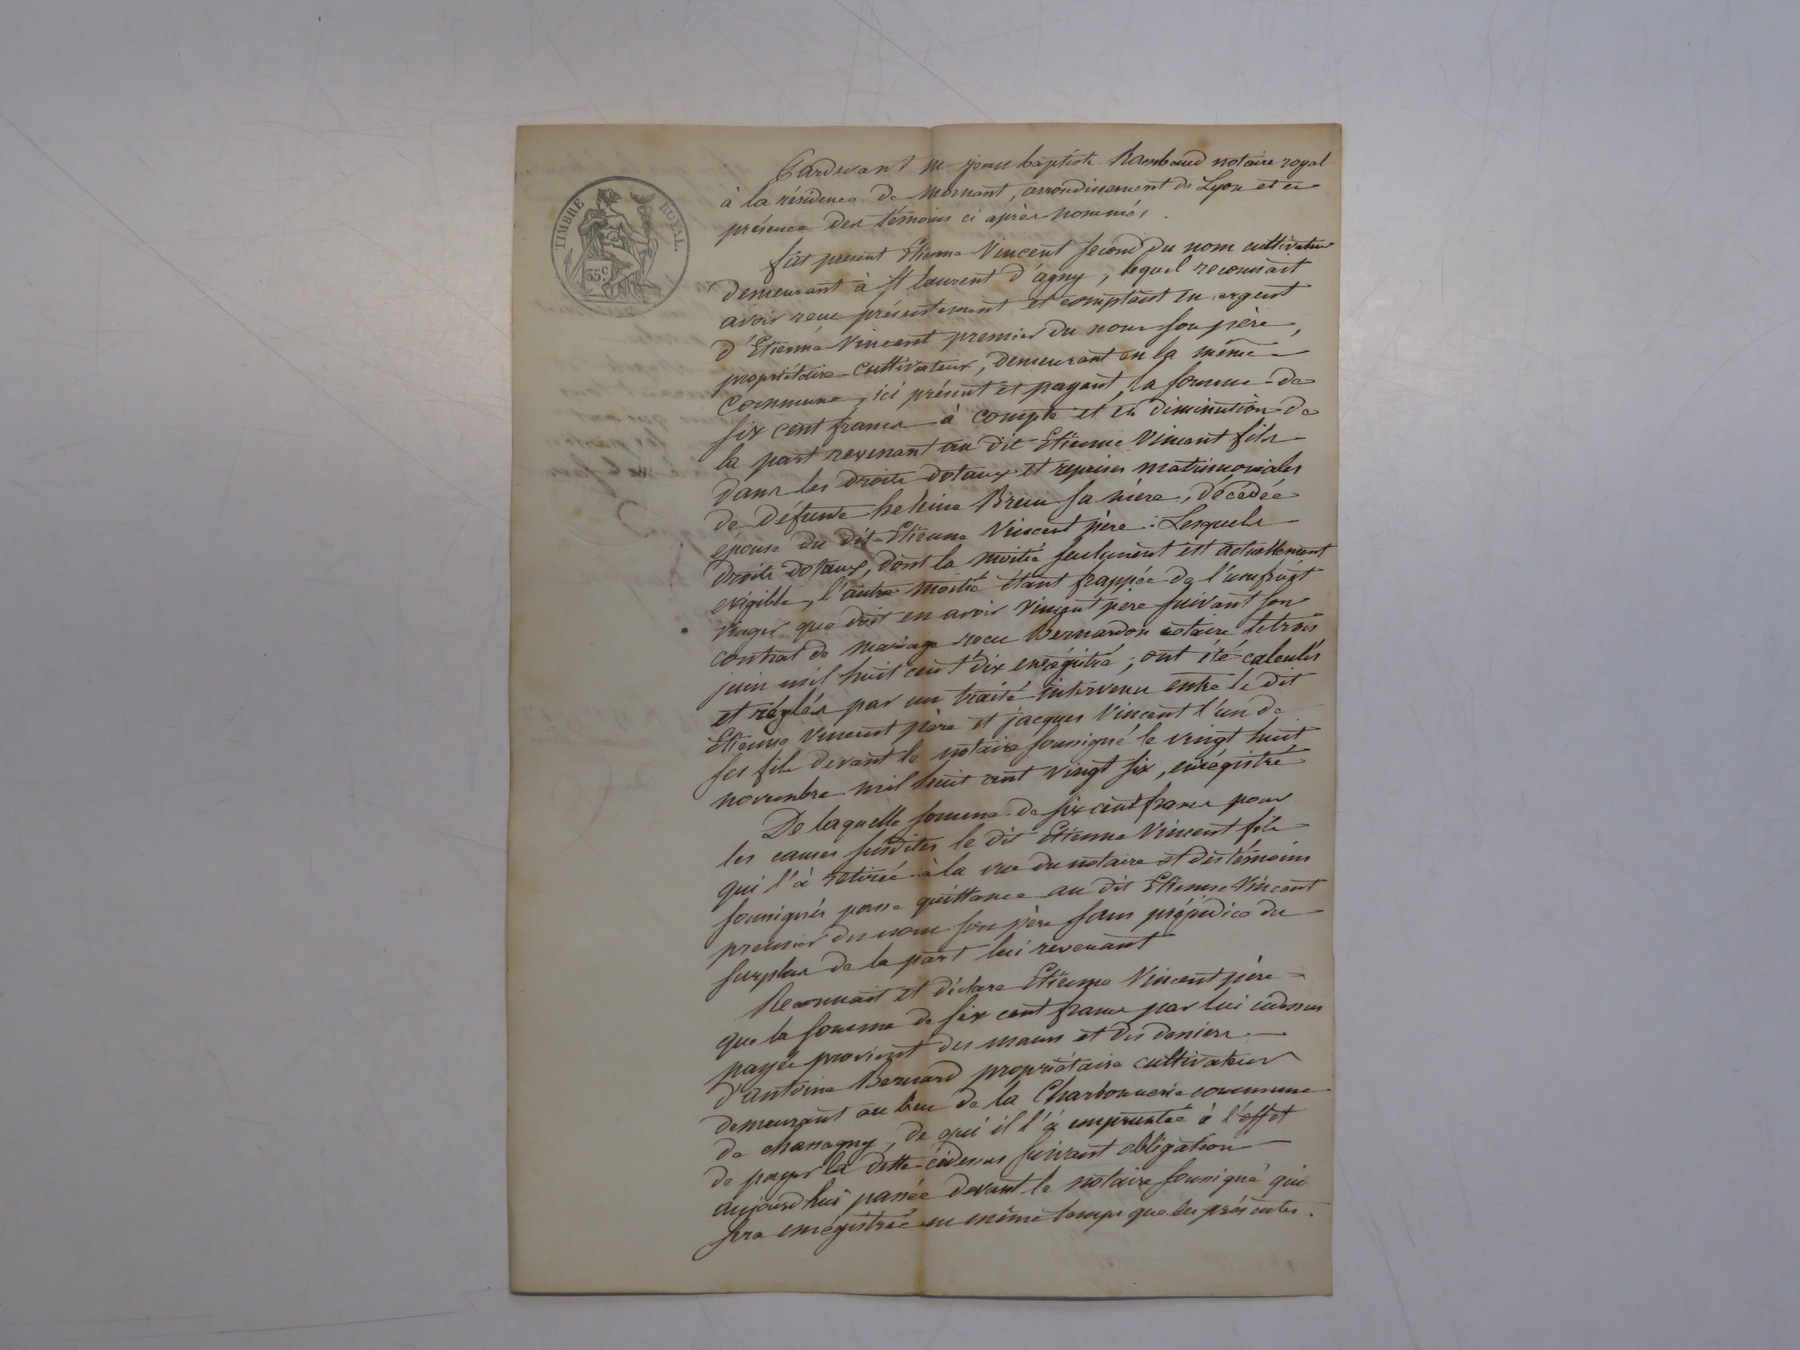 TIMBRE ROYAL.
35c.
Pardevant Me jean baptiste Rambaud notaire royal
à la résidence de Mornant, arrondissement de Lyon et en
présence des témoins ci après nommés.
fut present Etienne Vincent second du nom cultivateur
demeurant à St laurent d'agny, lequel reconnait
avoir reçu présentement et comptant en argent
d'Etienne Vincent premier du nom son père,
propriétaire-cultivateur, demeurant en la même
Commune, ici présent et payant, la somme de
six cent francs à compte et en diminution de
la part revenant au dit Etienne Vincent fils
dans les droits dotaux et reprises matrimoniales
de défunte Brun sa mère, décédée
épouse du dit Etienne Vincent père : Lesquels
droits dotaux, dont la moitié seulement est actuellement
exigible, l'autre moitié étant frappée de l'usufruit
viager que doit en avoir Vincent père suivant son
contrat de mariage reçu Bernardon notaire le trois
juin mil huit cent dix enrégistré; ont été calculés
et réglés par un traité intervenu entre le dit
Etienne Vincent père et jacques Vincent l'un de
ses fils devant le notaire soussigné le vingt huit
novembre mil huit cent vingt six, enrégistré
De laquelle somme de six cent francs pour
les causes susdites le dit Etienne Vincent fils
qui l'à retirée à la vue du notaire et des témoins
soussignés passe quittance au dit Etienne Vincent
premier du nom son père sans préjudice du
surplus de la part lui revenant
Reconnait et déclare Etienne Vincent père
que la somme de six cent francs par lui cidessus
payée provient des mains et des deniers
d'antoine Bernard propriétaire cultivateur
demeurant au lieu de la Charbonnerie commune
de chassagny, de qui il l'à empruntée à l'effet
de payer la dette cidessus suivant obligation
aujourd'hui passée devant le notaire soussigné qui
sera enregistrée en même temps que les présentes.